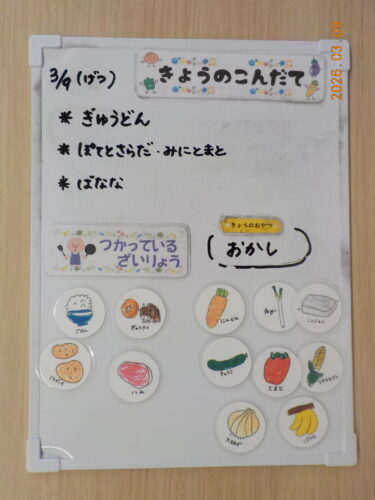 2026.03.
3/9(げつ)
きょうのこんだて
* ぎゅうどん
* ぽてとさらだ・みにとまと
* ばなな
つかっている
ざいりょう
きょうのおやつ
(おかし)
ごはん
ぎゅうにく
にんじん
ねぎ
こんにゃく
じゃがいも
ハム
きゅうり
とまと
とうもろこし
たまねぎ
ばなな